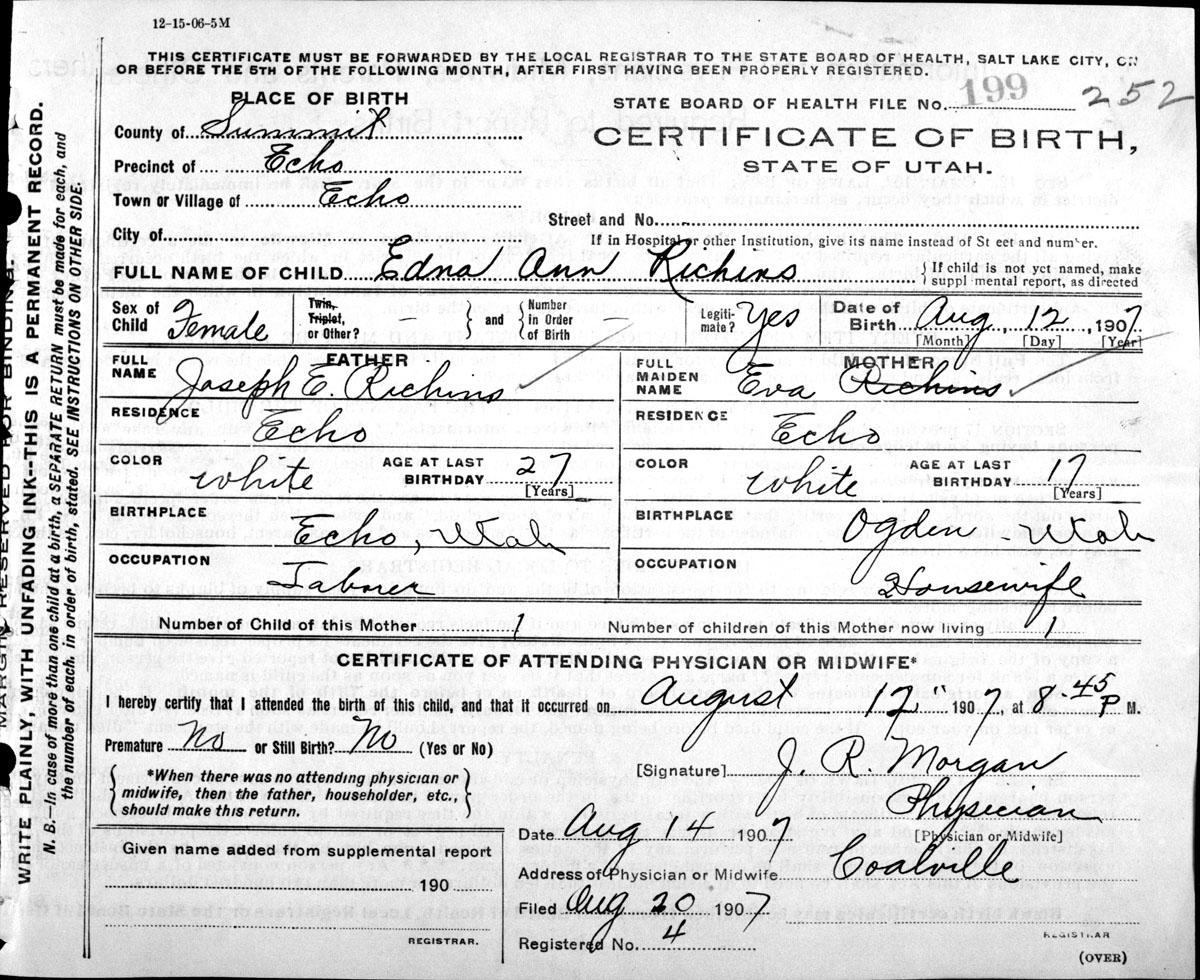 12-15-06-5M
THIS CERTIFICATE MUST BE FORWARDED BY THE LOCAL REGISTRAR TO THE STATE BOARD OF HEALTH, SALT LAKE CITY, ON
OR BEFORE THE 5TH OF THE FOLLOWING MONTH, AFTER FIRST HAVING BEEN PROPERLY REGISTERED.
PLACE OF BIRTH
County of Summit
Precinct of Echo
Town or Village of Echo
City of
STATE BOARD OF HEALTH FILE No. 199 252
CERTIFICATE OF BIRTH,
STATE OF UTAH.
Street and No.
If in Hospital or other Institution, give its name instead of St eet and number.
FULL NAME OF CHILD Edna Ann Richins } If child is not yet named, make suppl mental report, as directed
Sex of Child Female Twin, Triplet, or Other? } and { Number In Order of Birth Legiti-mate? Yes Date of Birth Aug, 12, 1907
[Month] [Day] [Year]
FATHER
FULL NAME Joseph E. Richins
RESIDENCE Echo
COLOR White AGE AT LAST BIRTHDAY 27 [Years]
BIRTHPLACE Echo, Utah
OCCUPATION Laborer
MOTHER
FULL MAIDEN NAME Eva Richins
RESIDENCE Echo
COLOR White AGE AT LAST BIRTHDAY 17 [Years]
BIRTHPLACE Ogden Utah
OCCUPATION Housewife
Number of Child of this Mother 1 Number of children of this Mother now living 1
CERTIFICATE OF ATTENDING PHYSICIAN OR MIDWIFE*
I hereby certify that I attended the birth of this child, and that it occurred on August 12" 1907, at 8 45 P M.
Premature No or Still Birth? No (Yes or No)
{ *When there was no attending physician or
midwife, then the father, householder, etc.,
should make this return. }
[Signature] J. R. Morgan
Physician
[Physician or Midwife]
Given name added from supplemental report
190
REGISTRAR.
Date Aug 14 1907
Address of Physician or Midwife Coalville
Filed Aug 20 1907
Registered No. 4
REGISTRAR
(OVER)
MARGIN RESERVED FOR BINDING.
WRITE PLAINLY, WITH UNFADING INK--THIS IS A PERMANENT RECORD.
N. B.—In case of more than one child at a birth, a SEPARATE RETURN must be made for each, and
the number of each, in order of birth, stated. SEE INSTRUCTIONS ON OTHER SIDE.